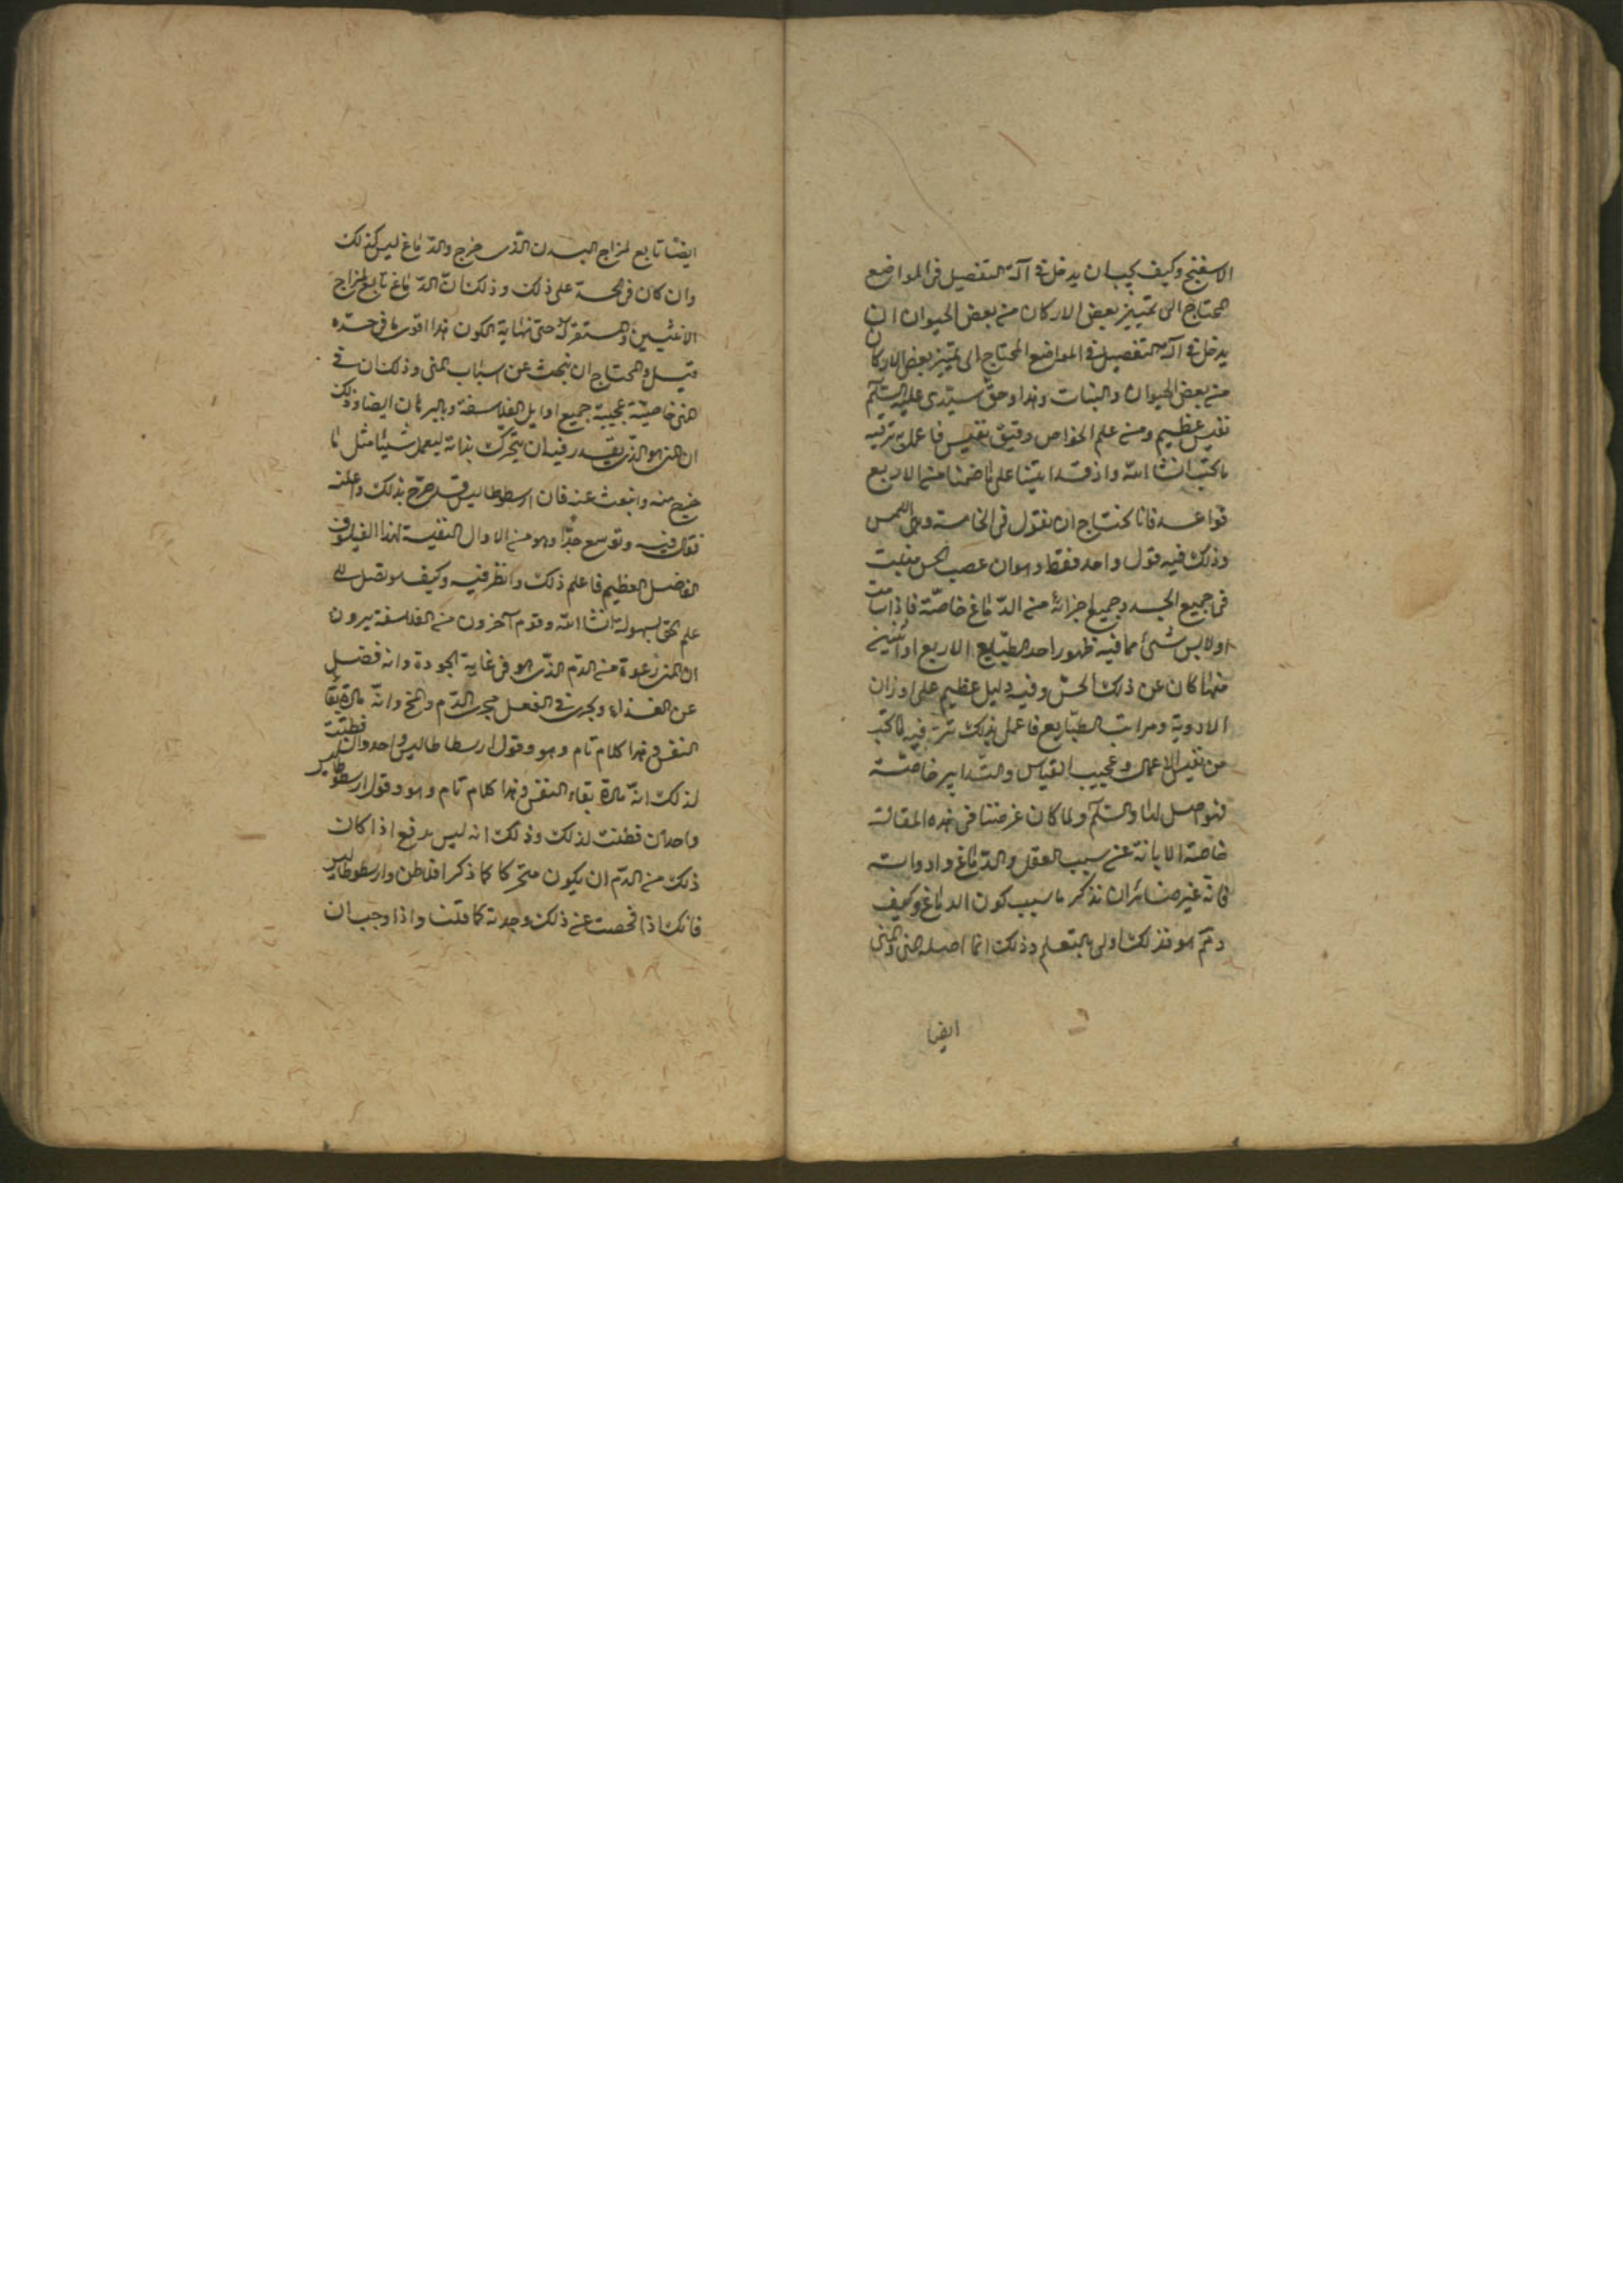 الاسفنج وكيف يجب ان يدخل فى آلة التفصيل فى المواضع
المحتاج الى تمييز بعض الاركان من بعض الحيوان ان
يدخل فى آلة التفصيل فى المواضع المحتاج الى تمييز بعض الاركان
من بعض الحيوان والنبات وهذا وحق سيّدى عليه السّلم
نفيس عظيم ومن علم الخواص دقيق نفيس فاعمل به ترقيه
ما تحبّ انشا اللّه واذ قد اتينا على ما ضمنا من الاربع
قواعد فانا نحتاج ان نقول فى الخامسة وهى اللمس
وذلك فيه قول واحد فقط وهو ان عصب الحس منبث
فى جميع الجسد وجميع اجزائه من الدّماغ خاصّة فاذا مات
اولابس شئ مما فيه ظهور احد الطبايع الاربع او اثنين
منها كان عن ذلك الحسّ وفيه دليل عظيم على اوزان
الادوية ومراتب الطبّايع فاعمل بذلك تر فيه ما تحبّ
من نفيس الاعمال وعجيب القياس والتّدابير خاصّة
فتواصل لها والسّلم ولما كان غرضنا فى هذه المقالة
خاصة الابانة عن سبب العقل والدّماغ وادواته
فانه غير ضائر ان نذكر ما سبب كون الدماغ وكيف
وممّ هو فذلك اولى بالتعلم وذلك انما اصله المنى والمنى
ايضا
ايضا تابع لمزاج البدن الّذى خرج والدّماغ ليس كذلك
وان كان فى الحسّ على ذلك وذلك انّ الدّماغ تابع لمزاج
الانثيين والمستقر له حتى نهاية الكون هذا اقوى ما فى حدّه
قيل والمحتاج ان نبحث عن اسباب المنى وذلك ان فى
المنى خاصيّة عجيبة جميع اوايل الفلاسفة وبالبرهان ايضا وذلك
ان المنى هو الذى يقدر فيه ان يتحرّك بذاته ليعمل شيئا مثل ما
خرج منه وانبعث عنه فان ارسطوطاليس قد صرّح بذلك واعلنه
فقال فيه وتوسع جدّا وهو من الاوال النفيسة لهذا الفيلسوف
الفاضل العظيم فاعلم ذلك وانظر فيه وكيف هو تصل الى
علم الحق بسهولة انشا اللّه وقوم آخرون من الفلاسفة يرون
ان المنى رغوة من الدّم الذّى هو فى غاية الجودة وانه فضل
عن الغذاء ويجرى فى الفعل مجرى الدّم والمخ وانّه مادّة بقا
النفس وهذا كلام تام وهو وقول ارسطاطاليس واحد وان فطنت
لذلك انّه مادة بقاء النفس وهذا كلام تام وهو وقول ارسطوطاليس
واحد ان فطنت لذلك وذلك انه ليس يدفع اذا كان
ذلك من الدّم ان يكون متحركا كما ذكر افلاطن وارسطوطاليس
فانك اذا فحصت عن ذلك وجدته كما قلنا واذا وجب ان